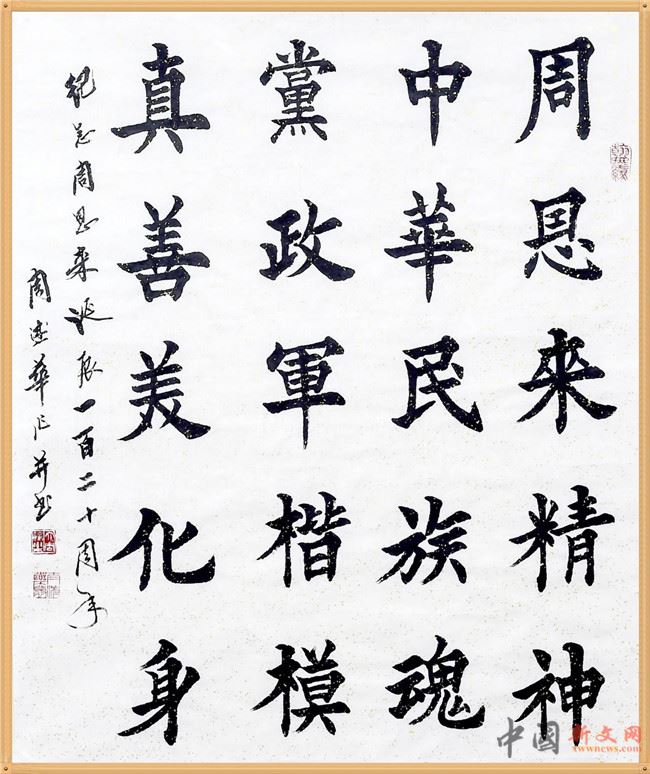 周恩來精神
中華民族魂
黨政軍楷模
真善美化身
纪念周恩来诞辰一百二十周年
周華作并书
中国新文网
xwwnews.com